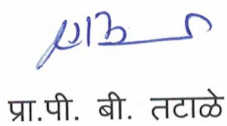 प्रा.पी. बी. तटाळे